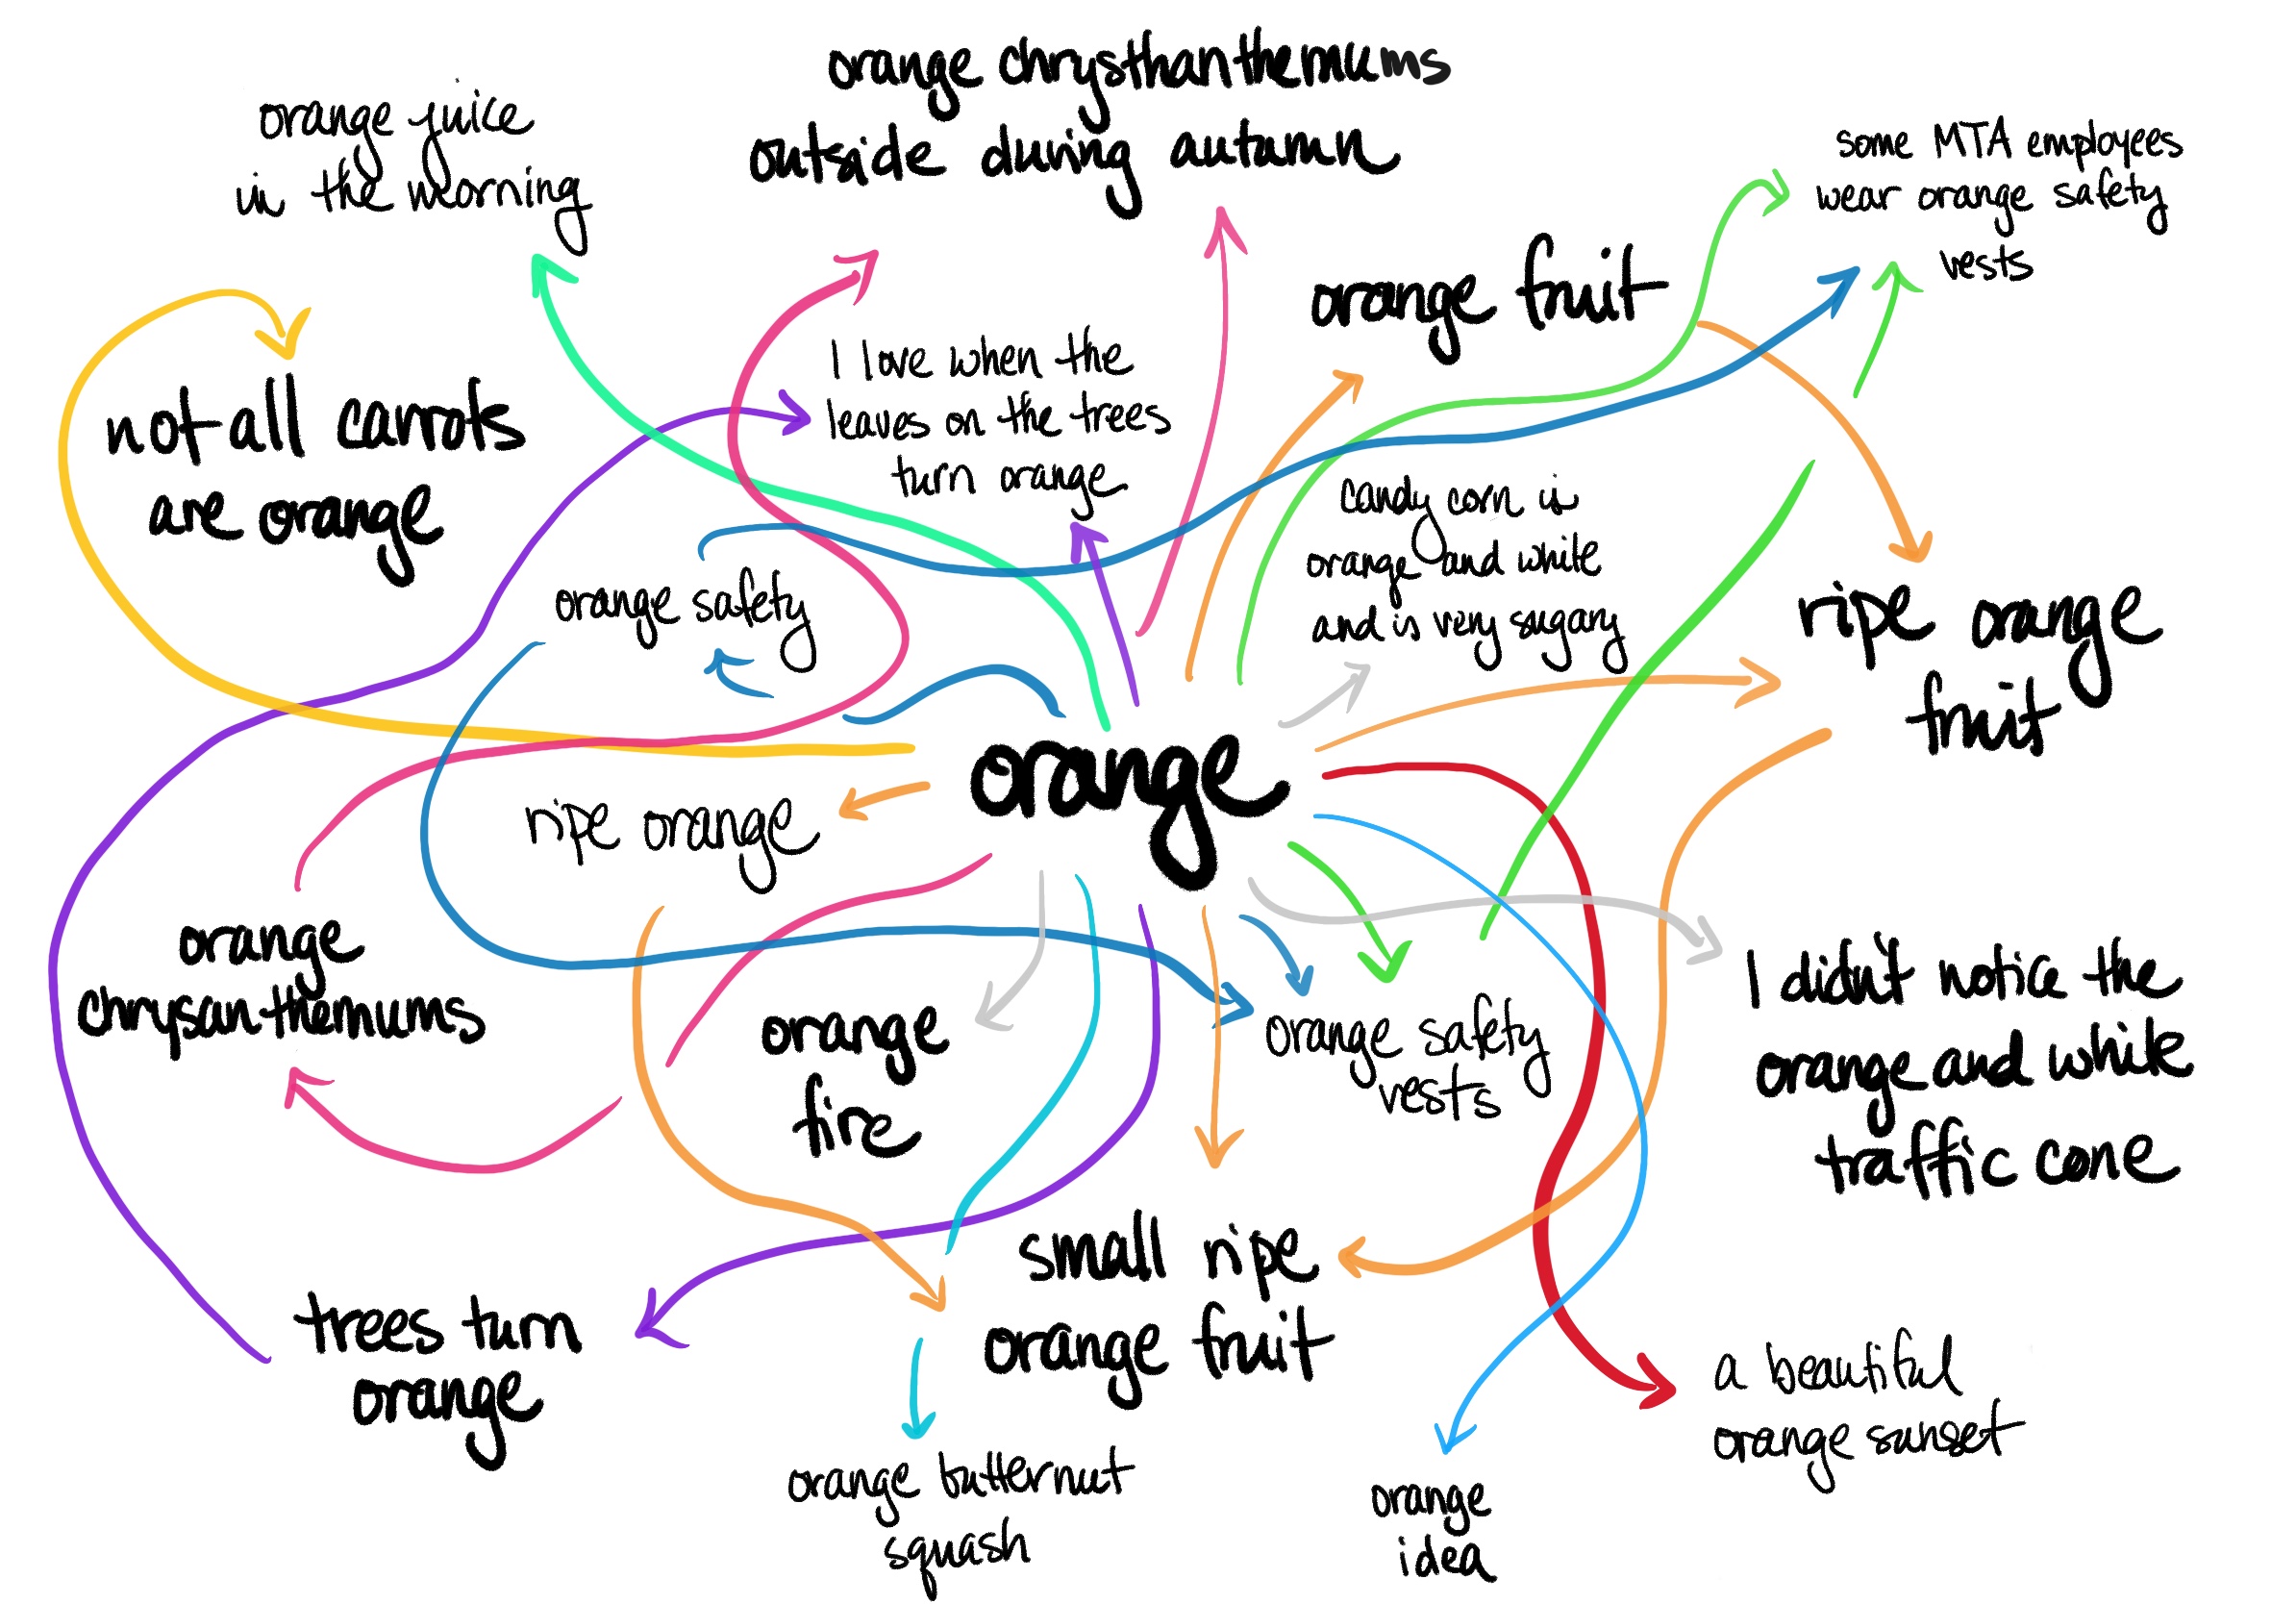 orange juice
in the morning
orange chrysthanthemums
outside during autumn
some MTA employees
wear orange safety
vests
orange fruit
I love when the
leaves on the trees
turn orange
not all carrots
are orange
candy corn is
orange and white
and is very sugary
orange safety
ripe orange
fruit
orange
ripe orange
orange
chrysanthemums
orange
fire
orange safety
vests
I didn't notice the
orange and white
traffic cone
trees turn
orange
small ripe
orange fruit
a beautiful
orange sunset
orange butternut
squash
orange
idea